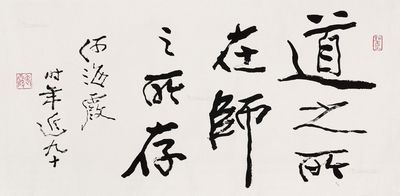 道之所
在師
之所存
何海霞
时年近九十